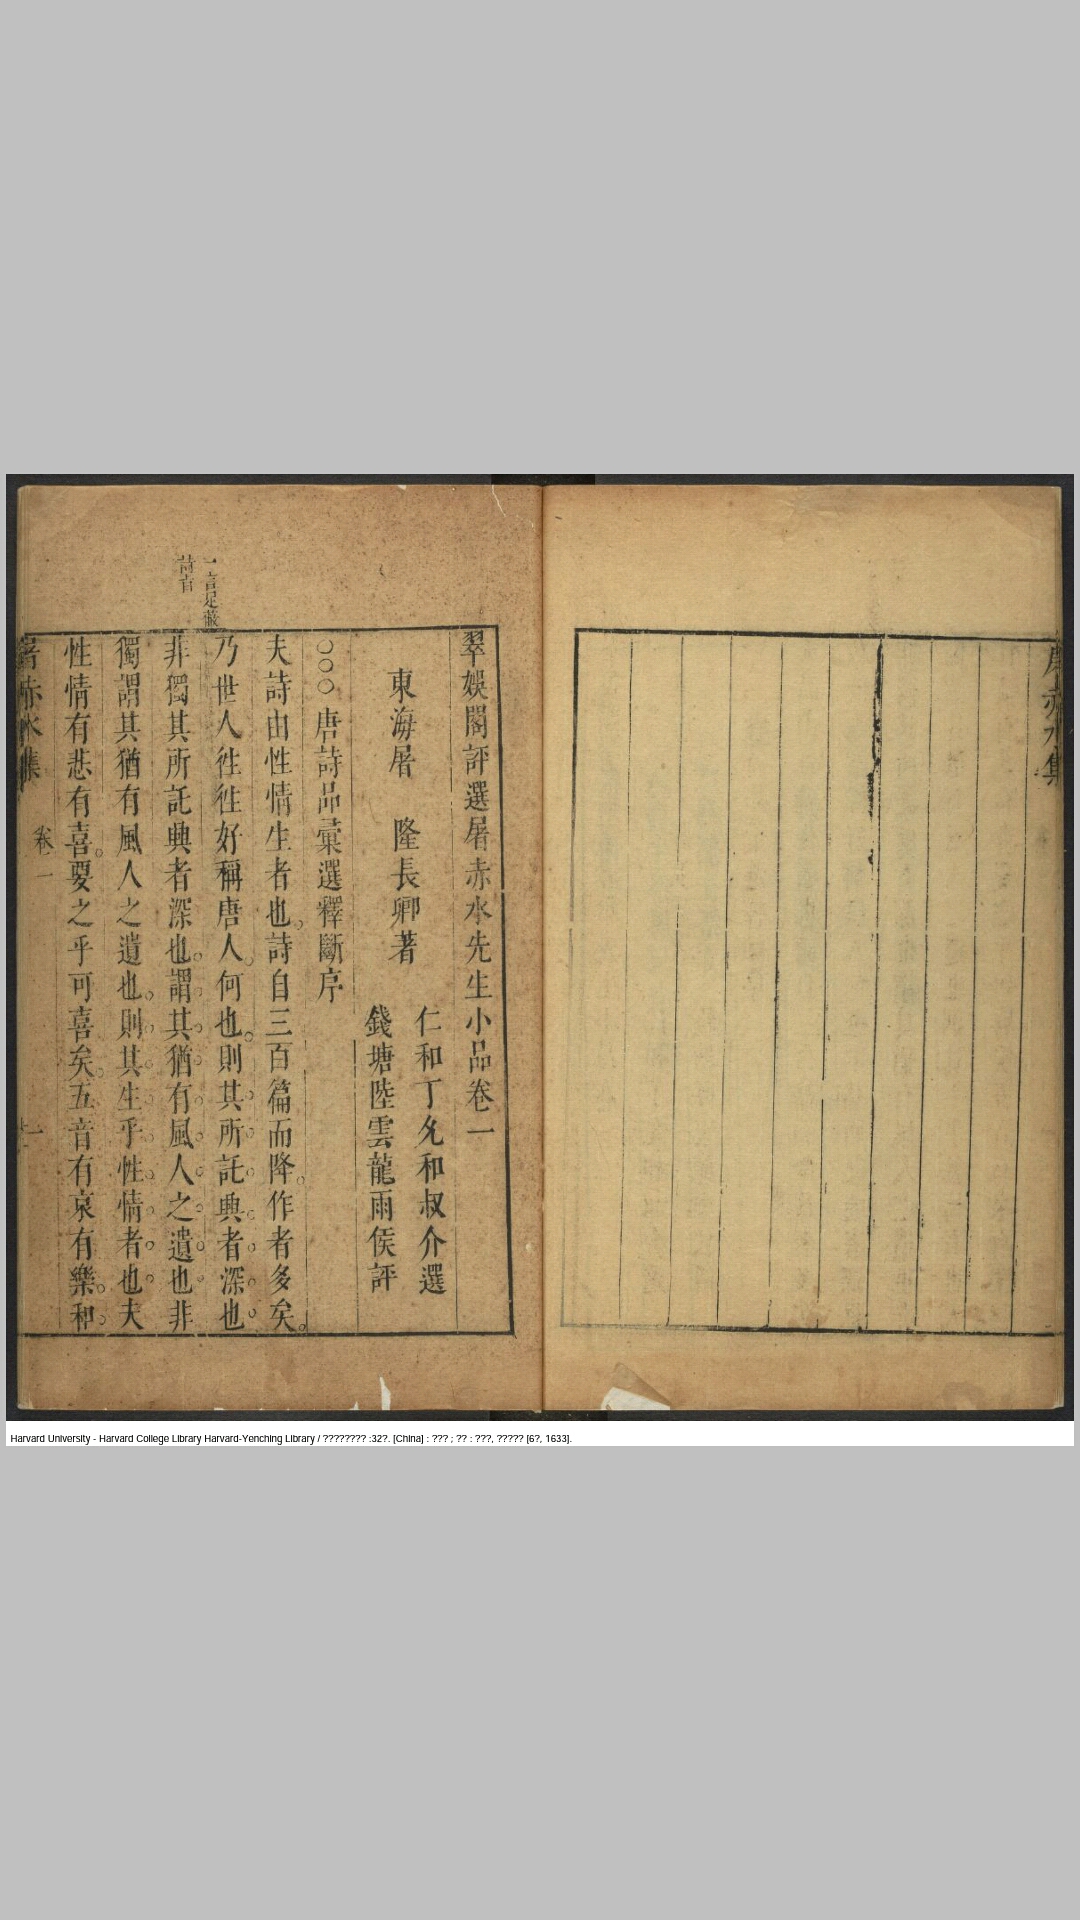 屠赤水集
翠娛閣評選屠赤水先生小品卷一
東海屠　隆長卿著
仁和丁允和叔介選
錢塘陸雲龍雨侯評
○○○唐詩品彙選釋斷序
夫詩由性情生者也。詩自三百篇而降。作者多矣。
乃世人徃徃好稱唐人。何也。則其所託興者深也
非獨其所託興者深也。謂其猶有風人之遺也非
獨謂其猶有風人之遺也。則其生乎性情者也夫
性情有悲有喜。要之乎可喜矣。五音有哀有樂。和
一言足蔽
屠赤水集
卷一
一
Harvard University - Harvard College Library Harvard-Yenching Library / ???????? :32?. [China] : ??? ; ?? : ???, ????? [6?, 1633].